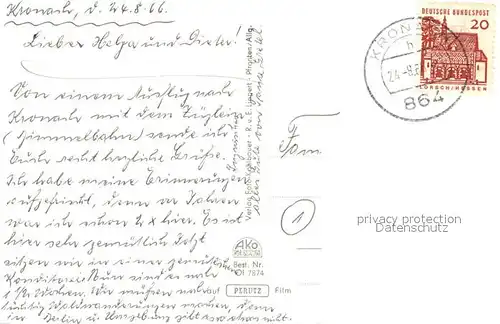 Kronach, d. 24.8.66
Lieber Helga und Dieter!
Von einem Ausflug nach
Kronach mit dem Züglein
(Himmelbahn) sende ich
Euch recht herzliche Grüße.
Ich habe meine Erinnerungen
aufgefrischt, denn vor Jahren
war ich schon 2 x hier. Es ist
hier sehr gemütlich. Jetzt
sitzen wir in einer gemütlichen
Konditorei. Nun sind es nur
1 1/2 Wochen. Wir müssen noch
Waldwanderungen machen, denn
in Berlin u. Umgebung gibt es so etwas nicht.
Alles Gute von
Verlag Foto - R. v. E. Lippert - Pfronten/Allg.
AKO
Best. Nr.
OI 7874
auf PERUTZ Film
Fam
1
DEUTSCHE BUNDESPOST
20
LORSCH/HESSEN
KRONACH
h
24.-8.6
864
privacy protection
Datenschutz